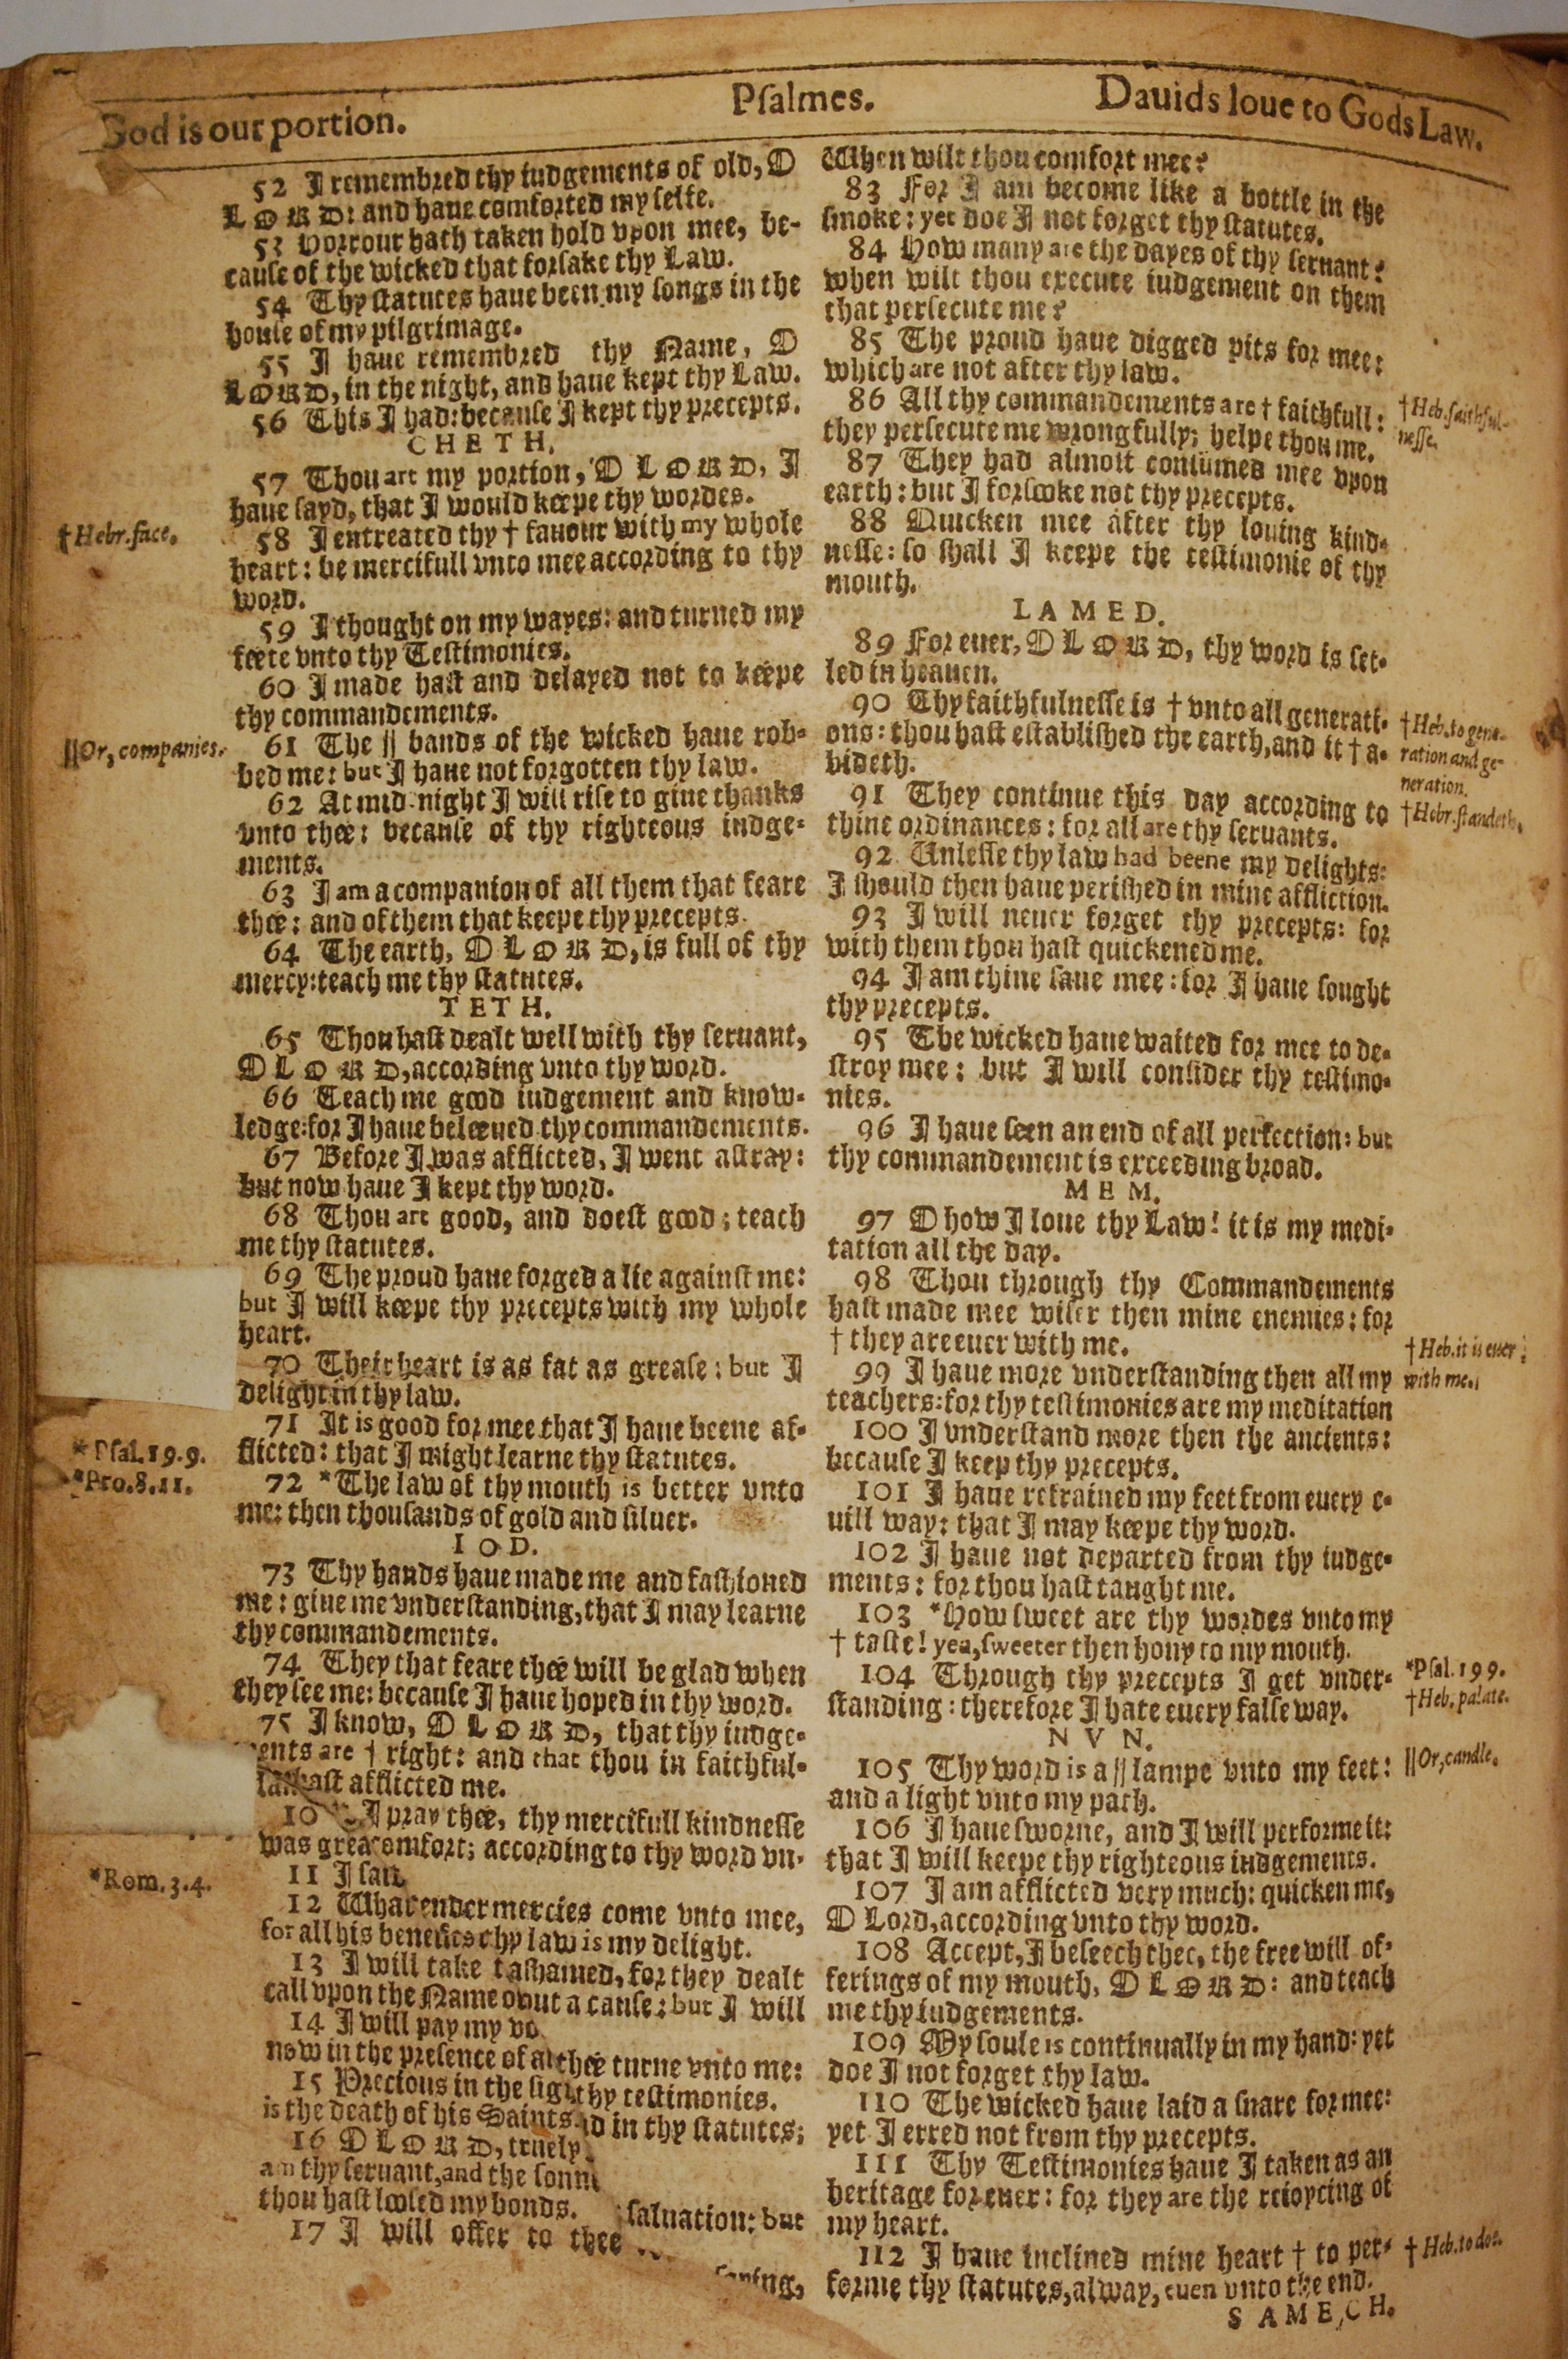 God is our portion.
Pſalmes.
Dauids loue to Gods Law.
52 I remembred thy iudgements of old, O
LORD: and haue comforted my ſelfe.
53 Horrour hath taken hold vpon mee, be-
cauſe of the wicked that forſake thy Law.
54 Thy ſtatutes haue been my ſongs in the
houſe of my pilgrimage.
55 I haue remembred thy Name, O
LORD, in the night, and haue kept thy Law.
56 This I had: becauſe I kept thy precepts.
CHETH.
57 Thou art my portion, O LORD, I
haue ſayd, that I would keepe thy wordes.
58 I entreated thy † fauour with my whole
heart: be mercifull vnto mee according to thy
word.
59 I thought on my wayes: and turned my
feete vnto thy Teſtimonies.
60 I made haſt and delayed not to keepe
thy commandements.
61 The || bands of the wicked haue rob-
bed me: but I haue not forgotten thy law.
62 At mid-night I will riſe to giue thanks
vnto thee: becauſe of thy righteous iudge-
ments.
63 I am a companion of all them that feare
thee: and of them that keepe thy precepts.
64 The earth, O LORD, is full of thy
mercy: teach me thy ſtatutes.
TETH.
65 Thou haſt dealt well with thy ſeruant,
O LORD, according vnto thy word.
66 Teach me good iudgement and know-
ledge: for I haue beleeued thy commandements.
67 Before I was afflicted, I went aſtray:
but now haue I kept thy word.
68 Thou art good, and doeſt good; teach
me thy ſtatutes.
69 The proud haue forged a lie againſt me:
but I will keepe thy precepts with my whole
heart.
70 Their heart is as fat as greaſe: but I
delight in thy law.
71 It is good for mee that I haue beene af-
flicted: that I might learne thy ſtatutes.
72 *The law of thy mouth is better vnto
me: then thouſands of gold and ſiluer.
IOD.
73 Thy hands haue made me and faſhioned
me: giue me vnderſtanding, that I may learne
thy commandements.
74 They that feare thee will be glad when
they ſee me: becauſe I haue hoped in thy word.
75 I know, O LORD, that thy iudge-
ents are † right: and that thou in faithful-
haſt afflicted me.
10 I pray thee, thy mercifull kindneſſe
was grea comfort; according to thy word vn-
11 I ſai
12 What ender mercies come vnto mee,
for all his benefits thy law is my delight.
13 I will take t aſhamed, for they dealt
call vpon the Name o out a cauſe: but I will
14 I will pay my vo
now in the preſence of al thee turne vnto me:
15 Precious in the ſig thy teſtimonies.
is the death of his Saints. d in thy ſtatutes;
16 O LORD, truely
am thy ſeruant, and the ſonn
thou haſt looſed my bonds. ſaluation: but
17 I will offer to thee
†Hebr. face.
||Or, companies.
*Pſal.19.9.
*Pro.8.11.
*Rom.3.4.
When wilt thou comfort mee?
83 For I am become like a bottle in the
ſmoke: yet doe I not forget thy ſtatutes.
84 How many are the dayes of thy ſeruant?
when wilt thou execute iudgement on them
that perſecute me?
85 The proud haue digged pits for mee:
which are not after thy law.
86 All thy commandements are † faithfull:
they perſecute me wrongfully; helpe thou me.
87 They had almoſt conſumed mee vpon
earth: but I forſooke not thy precepts.
88 Quicken mee after thy louing kind-
neſſe: ſo ſhall I keepe the teſtimonie of thy
mouth.
LAMED.
89 For euer, O LORD, thy word is ſet-
led in heauen.
90 Thy faithfulneſſe is † vnto all generati-
ons: thou haſt eſtabliſhed the earth, and it † a-
bideth.
91 They continue this day according to
thine ordinances: for all are thy ſeruants.
92 Unleſſe thy law had beene my delights:
I ſhould then haue periſhed in mine affliction.
93 I will neuer forget thy precepts: for
with them thou haſt quickened me.
94 I am thine ſaue mee: for I haue ſought
thy precepts.
95 The wicked haue waited for mee to de-
ſtroy mee: but I will conſider thy teſtimo-
nies.
96 I haue ſeen an end of all perfection: but
thy commandement is exceeding broad.
MEM.
97 O how I loue thy Law! it is my medi-
tation all the day.
98 Thou through thy Commandements
haſt made mee wiſer then mine enemies: for
† they are euer with me.
99 I haue more vnderſtanding then all my
teachers: for thy teſtimonies are my meditation
100 I vnderſtand more then the ancients:
becauſe I keep thy precepts.
101 I haue refrained my feet from euery e-
uill way: that I may keepe thy word.
102 I haue not departed from thy iudge-
ments: for thou haſt taught me.
103 *How ſweet are thy wordes vnto my
† taſte! yea, ſweeter then hony to my mouth.
104 Through thy precepts I get vnder-
ſtanding: therefore I hate euery falſe way.
NVN.
105 Thy word is a || lampe vnto my feet:
and a light vnto my path.
106 I haue ſworne, and I will performe it:
that I will keepe thy righteous iudgements.
107 I am afflicted very much: quicken me,
O Lord, according vnto thy word.
108 Accept, I beſeech thee, the free will of-
ferings of my mouth, O LORD: and teach
me thy iudgements.
109 My ſoule is continually in my hand: yet
doe I not forget thy law.
110 The wicked haue laid a ſnare for mee:
yet I erred not from thy precepts.
111 Thy Teſtimonies haue I taken as an
heritage for euer: for they are the reioycing of
my heart.
112 I haue inclined mine heart † to per-
forme thy ſtatutes, alway, euen vnto the end.
SAMECH.
†Heb. faithful-
neſſe.
†Heb. to gene-
ration and ge-
neration.
†Hebr. ſtandeth.
†Heb. it is euer
with me.
*Pſal.199.
†Heb. palate.
||Or, candle.
†Heb. to doe.